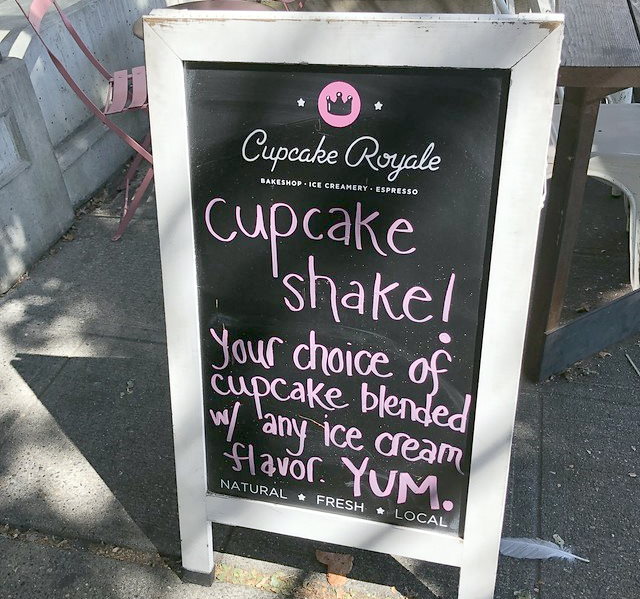 Cupcake Royale
BAKESHOP · ICE CREAMERY · ESPRESSO
cupcake
shake!
your choice of
cupcake blended
w/ any ice cream
flavor. YUM.
NATURAL ★ FRESH ★ LOCAL